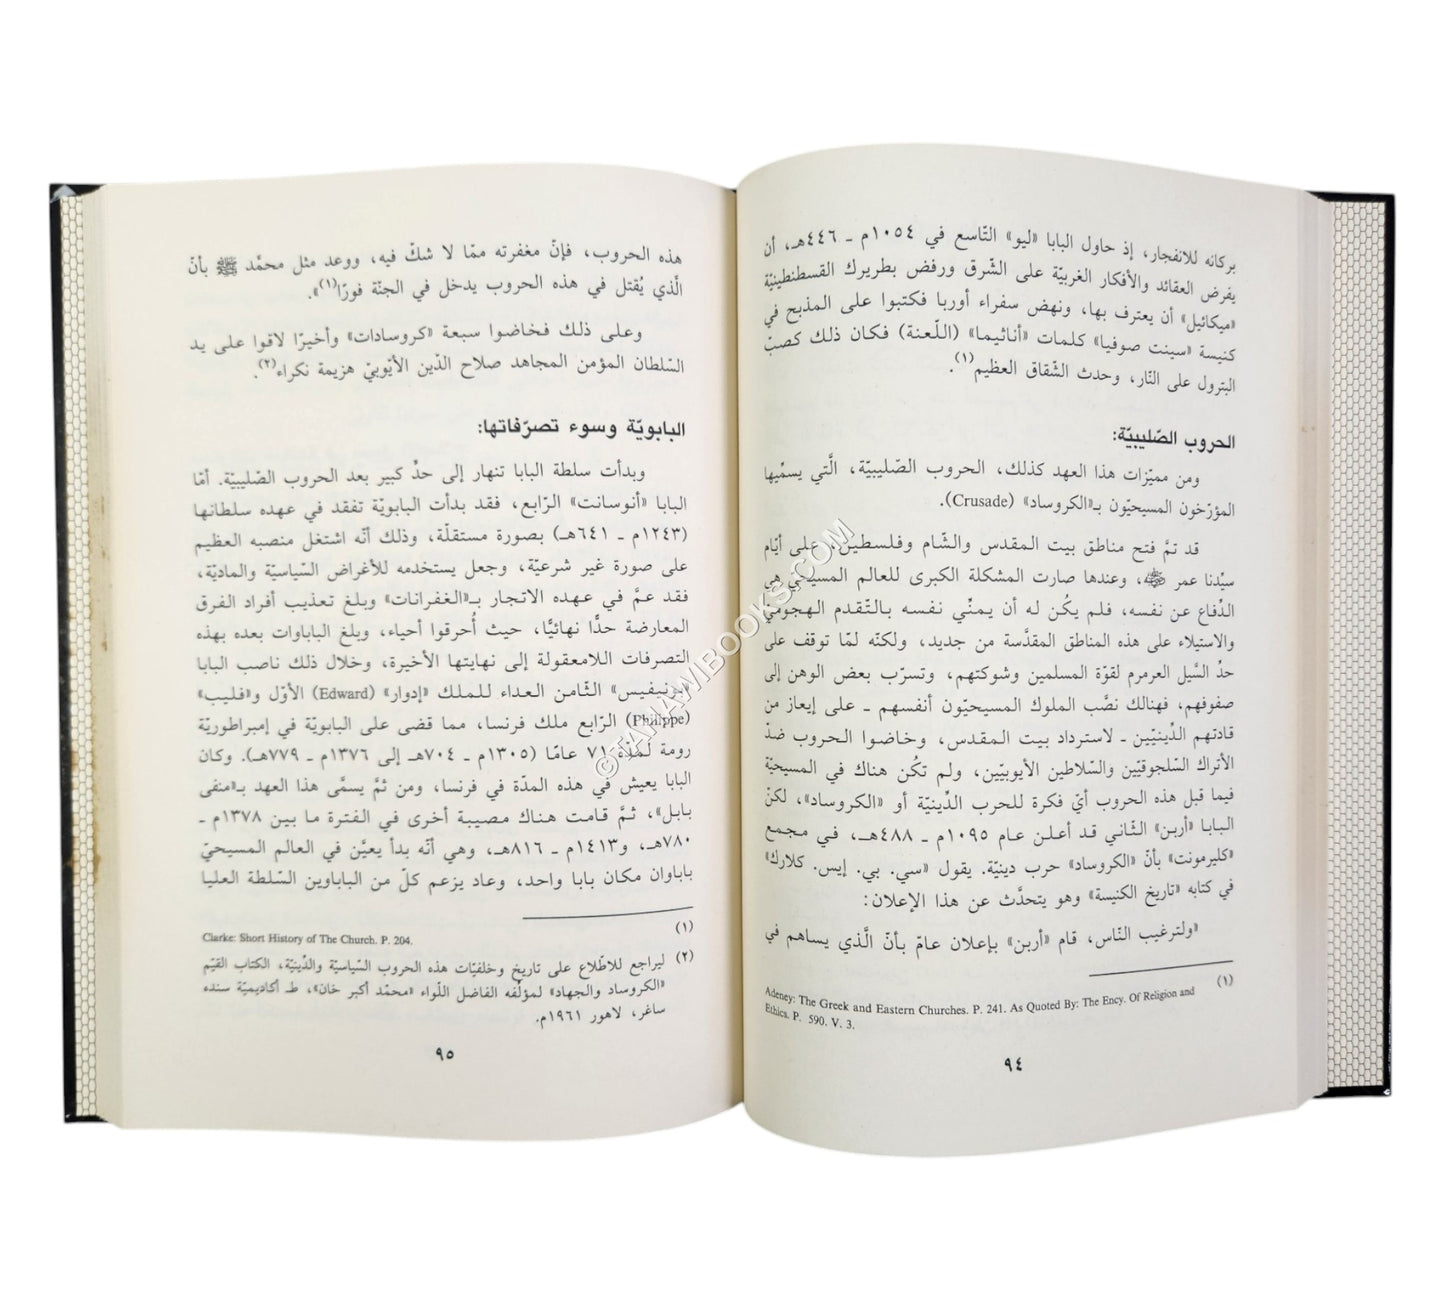 بركانه للانفجار، إذ حاول البابا «ليو» التّاسع في ١٠٥٤م ـ ٤٤٦هـ، أن
يفرض العقائد والأفكار الغربيّة على الشّرق ورفض بطريرك القسطنطينيّة
«ميكائيل» أن يعترف بها، ونهض سفراء أوربا فكتبوا على المذبح في
كنيسة «سينت صوفيا» كلمات «أناثيما» (اللّعنة) فكان ذلك كصبّ
البترول على النّار، وحدث الشّقاق العظيم(١).
الحروب الصّليبيّة:
ومن مميّزات هذا العهد كذلك، الحروب الصّليبيّة، الّتي يسمّيها
المؤرّخون المسيحيّون بـ«الكروساد» (Crusade).
قد تمَّ فتح مناطق بيت المقدس والشّام وفلسطين، على أيّام
سيِّدنا عمر ﷺ، وعندها صارت المشكلة الكبرى للعالم المسيحي هي
الدّفاع عن نفسه، فلم يكُن له أن يمنّي نفسه بالتّقدم الهجومي
والاستيلاء على هذه المناطق المقدَّسة من جديد، ولكنّه لمّا توقف على
حدّ السَّيل العرمرم لقوّة المسلمين وشوكتهم، وتسرّب بعض الوهن إلى
صفوفهم، فهنالك نصَّب الملوك المسيحيّون أنفسهم ـ على إيعاز من
قادتهم الدِّينيّين ـ لاسترداد بيت المقدس، وخاضوا الحروب ضدّ
الأتراك السّلجوقيّين والسّلاطين الأيوبيّين، ولم تكُن هناك في المسيحيّة
فيما قبل هذه الحروب أيّ فكرة للحرب الدِّينيّة أو «الكروساد»، لكنّ
البابا «أربن» الثّاني قد أعلن عام ١٠٩٥م ـ ٤٨٨هـ، في مجمع
«كليرمونت» بأنّ «الكروساد» حرب دينيّة. يقول «سي. بي. إيس. كلارك»
في كتابه «تاريخ الكنيسة» وهو يتحدَّث عن هذا الإعلان:
«ولترغيب النّاس، قام «أربن» بإعلان عامّ بأنّ الَّذي يساهم في
(١)
Adeney: The Greek and Eastern Churches. P. 241. As Quoted By: The Ency. Of Religion and
Ethics. P. 590. V. 3.
٩٤
هذه الحروب، فإنّ مغفرته ممّا لا شكّ فيه، ووعد مثل محمَّد ﷺ بأنّ
الَّذي يُقتل في هذه الحروب يدخل في الجنّة فورًا(١)».
وعلى ذلك فخاضوا سبعة «كروسادات» وأخيرًا لاقوا على يد
السّلطان المؤمن المجاهد صلاح الدّين الأيّوبيّ هزيمة نكراء(٢).
البابويّة وسوء تصرّفاتها:
وبدأت سلطة البابا تنهار إلى حدّ كبير بعد الحروب الصّليبيّة. أمّا
البابا «أنوسانت» الرّابع، فقد بدأت البابويّة تفقد في عهده سلطانها
(١٢٤٣م ـ ٦٤١هـ) بصورة مستقلّة، وذلك أنّه اشتغل منصبه العظيم
على صورة غير شرعيّة، وجعل يستخدمه للأغراض السّياسيّة والماديّة،
فقد عمَّ في عهده الاتجار بـ«الغفرانات» وبلغ تعذيب أفراد الفرق
المعارضة حدًّا نهائيًّا، حيث أُحرقوا أحياء، وبلغ الباباوات بعده بهذه
التصرفات اللامعقولة إلى نهايتها الأخيرة، وخلال ذلك ناصب البابا
«بونيفيس» الثّامن العداء للملك «إدوار» (Edward) الأوّل و«فليب»
(Philippe) الرّابع ملك فرنسا، مما قضى على البابويّة في إمبراطوريّة
رومة لمدّة ٧١ عامًا (١٣٠٥م ـ ٧٠٤هـ إلى ١٣٧٦م ـ ٧٧٩هـ). وكان
البابا يعيش في هذه المدّة في فرنسا، ومن ثمَّ يسمَّى هذا العهد بـ«منفى
بابل»، ثمَّ قامت هناك مصيبة أخرى في الفترة ما بين ١٣٧٨م ـ
٧٨٠هـ، و١٤١٣م ـ ٨١٦هـ، وهي أنّه بدأ يعيَّن في العالم المسيحيّ
باباوان مكان بابا واحد، وعاد يزعم كلّ من الباباوين السّلطة العليا
(١)
Clarke: Short History of The Church. P. 204.
(٢) ليراجع للاطّلاع على تاريخ وخلفيّات هذه الحروب السّياسيّة والدِّينيّة، الكتاب القيّم
«الكروساد والجهاد» لمؤلّفه الفاضل اللّواء «محمّد أكبر خان»، طـ أكاديميّة سنده
ساغر، لاهور ١٩٦١م.
٩٥
©TANAWIBOOKS.COM